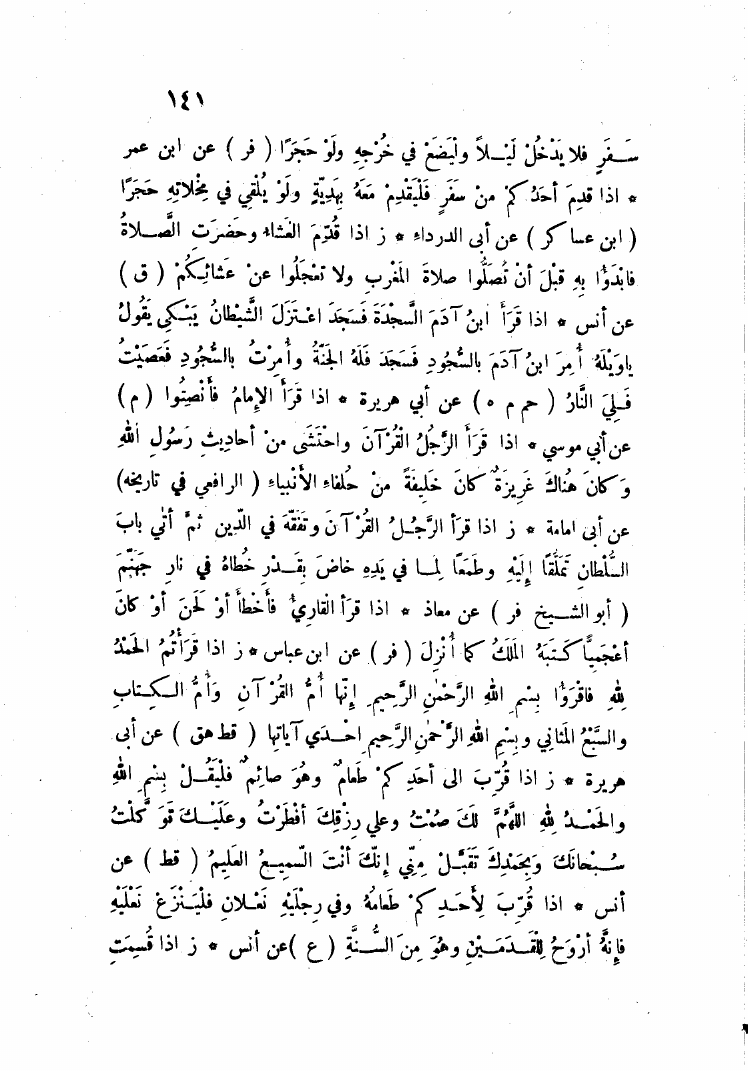 ١٤١
سَفَرٍ فلا يَدْخُلْ لَيْلاً ولْيَضَعْ في خُرْجِهِ ولَوْ حَجَرًا ( فر ) عن ابن عمر
* اذا قدِمَ أحَدُكمْ منْ سَفَرٍ فَلْيَقْدِمْ مَعَهُ بِهَدِيَّةٍ ولَوْ يُلْقِي في مِخْلاتِهِ حَجَرًا
( ابن عساكر ) عن أبى الدرداء * ز اذا قُدِّمَ العَشاء وحَضَرَتِ الصَّلاةُ
فابْدَؤُا بِهِ قبْلَ أنْ تُصَلُّوا صلاةَ المَغْرِبِ ولا تعْجَلُوا عنْ عَشائِكُمْ ( ق )
عن أنس * اذا قَرَأَ ابنُ آدَمَ السَّجْدَةَ فَسَجَدَ اعْتَزَلَ الشَّيْطانُ يَبْكِي يقُولُ
ياوَيْلَهُ أُمِرَ ابنُ آدَمَ بالسُّجُودِ فَسَجَدَ فلَهُ الجَنَّةُ وأُمِرْتُ بالسُّجُودِ فعَصَيْتُ
فَلِيَ النَّارُ ( حم م ه ) عن أبي هريرة * اذا قَرَأَ الإِمامُ فأَنْصِتُوا ( م )
عن أبي موسي * اذا قَرَأَ الرَّجُلُ القُرْآنَ واحْتَشَى منْ أحادِيثِ رَسُولِ اللهِ
وَكانَ هُناكَ غَرِيزَةٌ كانَ خَلِيفَةً منْ خُلفاءِ الأنْبِياءِ ( الرافعي في تاريخه)
عن أبى امامة * ز اذا قرَأ الرَّجُلُ القُرْآنَ وتَفَقَّهَ في الدّينِ ثمَّ أتي بابَ
السُّلْطانِ تَمَلُّقًا إِلَيْهِ وطَمَعًا لِمَا في يَدِهِ خاضَ بِقَدْرِ خُطاهُ في نارِ جَهَنَّمَ
( أبو الشيخ فر ) عن معاذ * اذا قَرَأ القارِئُ فأخْطأ أوْ لَحَنَ أوْ كانَ
أعْجَمِيًّا كَتَبَهُ المَلَكُ كما أُنْزِلَ ( فر ) عن ابن عباس * ز اذا قَرَأْتُمُ الحَمْدُ
لِلهِ فاقْرَؤُا بِسْمِ اللهِ الرَّحْمٰنِ الرَّحِيمِ إنَّها أُمُّ القُرْآنِ وَأُمُّ الكِتابِ
والسَّبْعُ المَثانِي وبِسْمِ اللهِ الرَّحْمٰنِ الرَّحِيمِ احْدَي آياتِها ( قط هق ) عن أبى
هريرة * ز اذا قُرِّبَ الى أحَدِكمْ طَعامٌ وهُوَ صائِمٌ فلْيَقُلْ بِسْمِ اللهِ
والحَمْدُ لِلهِ اللَّهُمَّ لَكَ صُمْتُ وعلي رِزْقِكَ أفْطَرْتُ وعَلَيْكَ تَوَكَّلْتُ
سُبْحانَكَ وَبِحَمْدِكَ تَقَبَّلْ مِنِّي إِنَّكَ أنْتَ السَّمِيعُ العَلِيمُ ( قط ) عن
أنس * اذا قُرِّبَ لِأَحَدِكمْ طَعامُهُ وفي رِجْلَيْهِ نَعْلانِ فلْيَنْزِعْ نَعْلَيْهِ
فإِنَّهُ أرْوَحُ لِلْقَدَمَيْنِ وهُوَ مِنَ السُّنَّةِ ( ع )عن أنس * ز اذا قُسِمَتِ